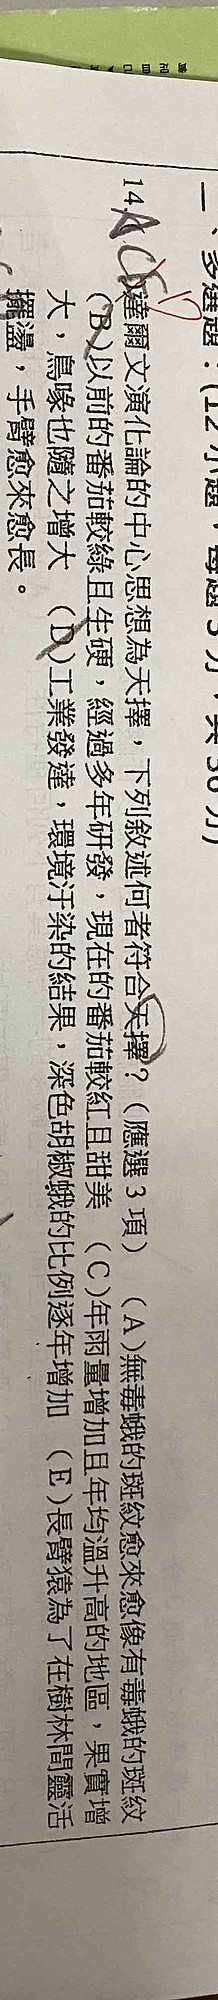 一、多選題：(12 小題，每題 3 分，共 36 分)
14. 達爾文演化論的中心思想為天擇，下列敘述何者符合天擇？（應選 3 項）　（A）無毒蛾的斑紋愈來愈像有毒蛾的斑紋
（B）以前的番茄較綠且生硬，經過多年研發，現在的番茄較紅且甜美　（C）年雨量增加且年均溫升高的地區，果實增
大，鳥喙也隨之增大　（D）工業發達，環境汙染的結果，深色胡椒蛾的比例逐年增加　（E）長臂猿為了在樹林間靈活
擺盪，手臂愈來愈長。